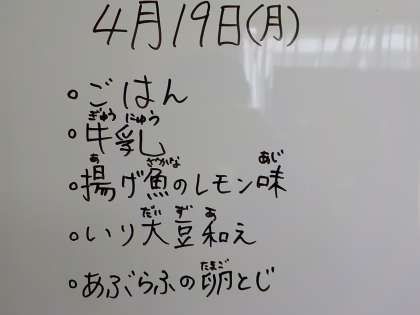 4月19日(月)
○ごはん
ぎゅうにゅう
○牛乳
あ さかな あじ
○揚げ魚のレモン味
だいず あ
○いり大豆和え
たまご
○あぶらふの卵とじ